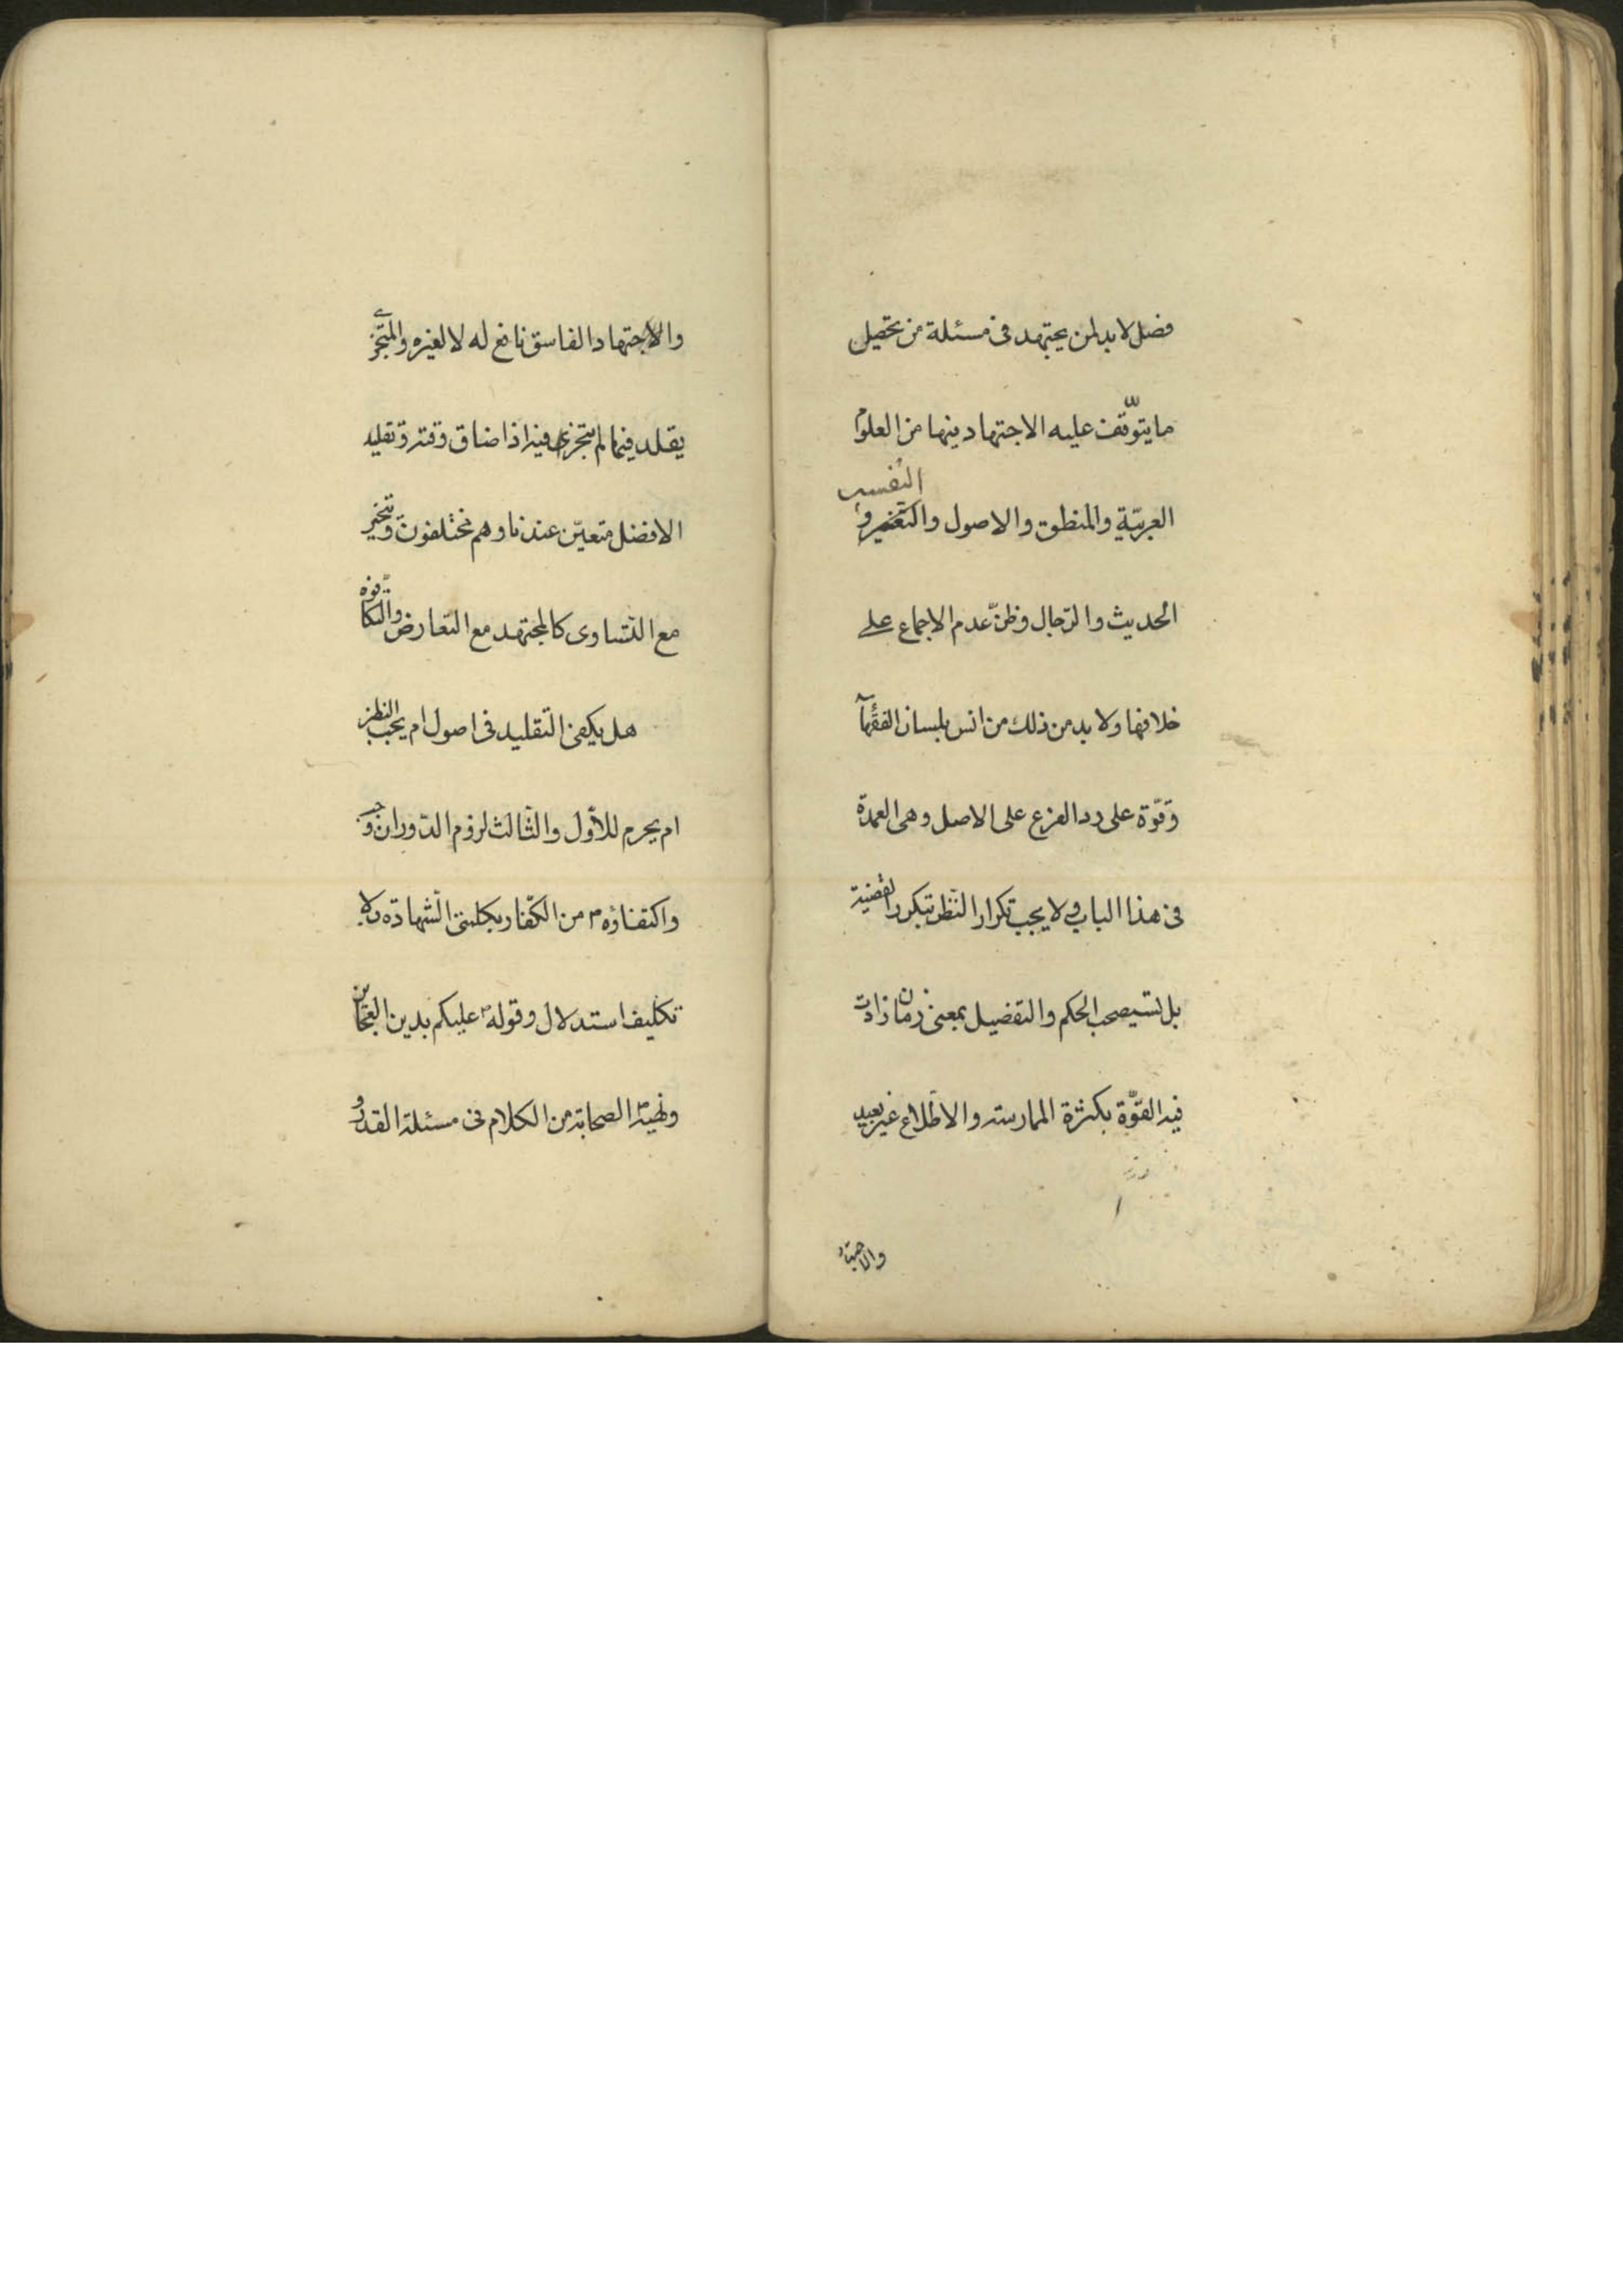 فصل لا بد لمن يجتهد فى مسئلة من تحصيل
ما يتوقّف عليه الاجتهاد فيها من العلوم
العربيّة والمنطق والاصول والتفسير و
التفسير
الحديث والرّجال وظنّ عدم الاجماع على
خلافها ولا بد من ذلك من انس بلسان الفقهآ
وقوّة على رد الفرع على الاصل وهى العمدة
فى هذا الباب ولا يجب تكرار النّظر بتكرر القضية
بل تستصحب الحكم والتفصيل بمعنى زمان زادت
فيه القوّة بكثرة الممارسة والاطّلاع غير بعيد
والاجتهاد
والاجتهاد الفاسق نافع له لا لغيره والمتجزى
يقلد فيما لم يتجزى فيه اذا ضاق وقته وتقليد
الافضل متعيّن عندنا وهم مختلفون ويتخير
مع التّساوى كالمجتهد مع التّعارض والتكافؤ
هل يكفى التّقليد فى اصول ام يجب النظر
ام يحرم للأول والثّالث لزوم الدّوران وجب
واكتفاؤه من الكفّار بكلمتى الشّهادة بلا
تكليف استدلال وقوله عليكم بدين العجائز
ونهيه الصحابة من الكلام فى مسئلة القدر و